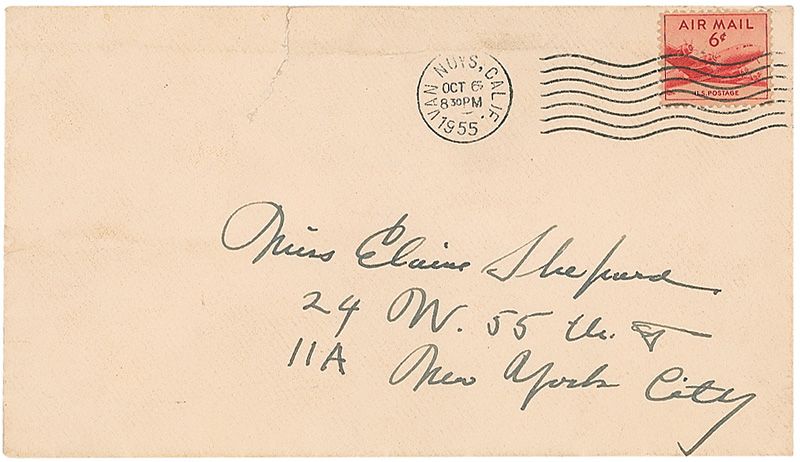 AIR MAIL
6¢
U.S. POSTAGE
VAN NUYS, CALIF.
OCT 6
8 30 PM
1955
Miss Elaine Shepard
24 W. 55 th. St
11A New York City